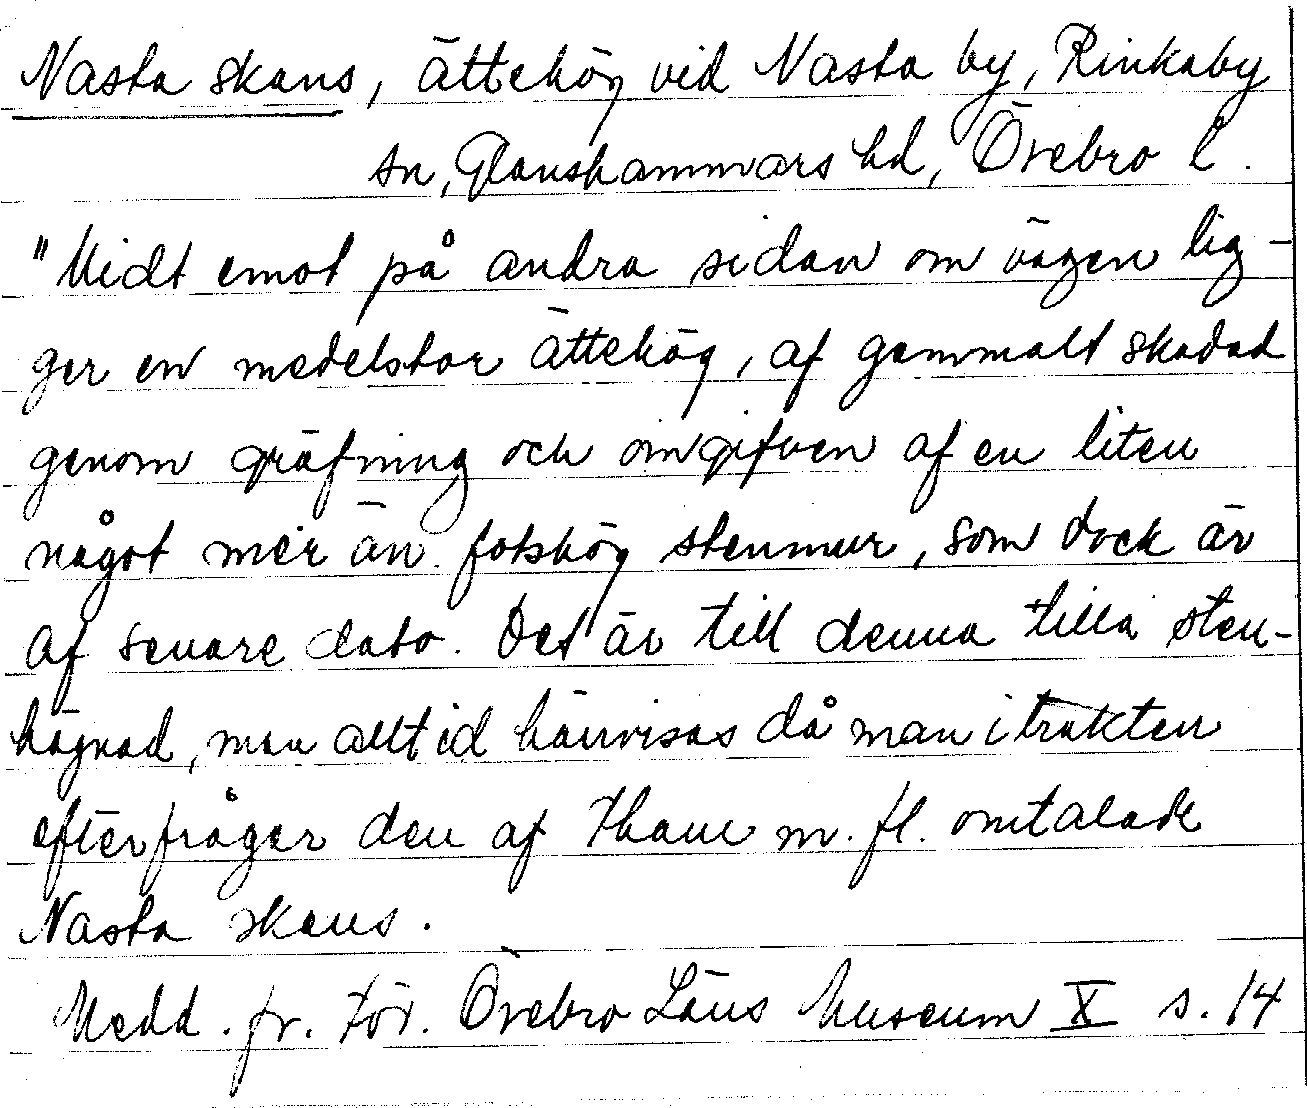 Nasta skans, ättehög vid Nasta by, Rinkaby
sn, Glanshammars hd, Örebro l.
"Midt emot på andra sidan om vägen lig-
ger en medelstor ättehög, af gammalt skadad
genom gräfning och omgifven af en liten
något mer än fotshög stenmur, som dock är
af senare dato. Det är till denna lilla sten-
hägnad, man alltid hänvisas då man i trakten
efterfrågar den af Tham m. fl. omtalade
Nasta skans.
Medd. fr. För. Örebro Läns Museum X s. 14